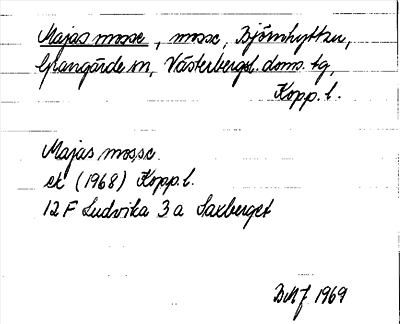 Majas mosse, mosse, Björnhyttan,
Grangärde sn, Västerbergsl. doms. tg,
Kopp. l.
Majas mosse
ek (1968) Kopp. l.
12 F Ludvika 3 a Saxberget
BMj 1969